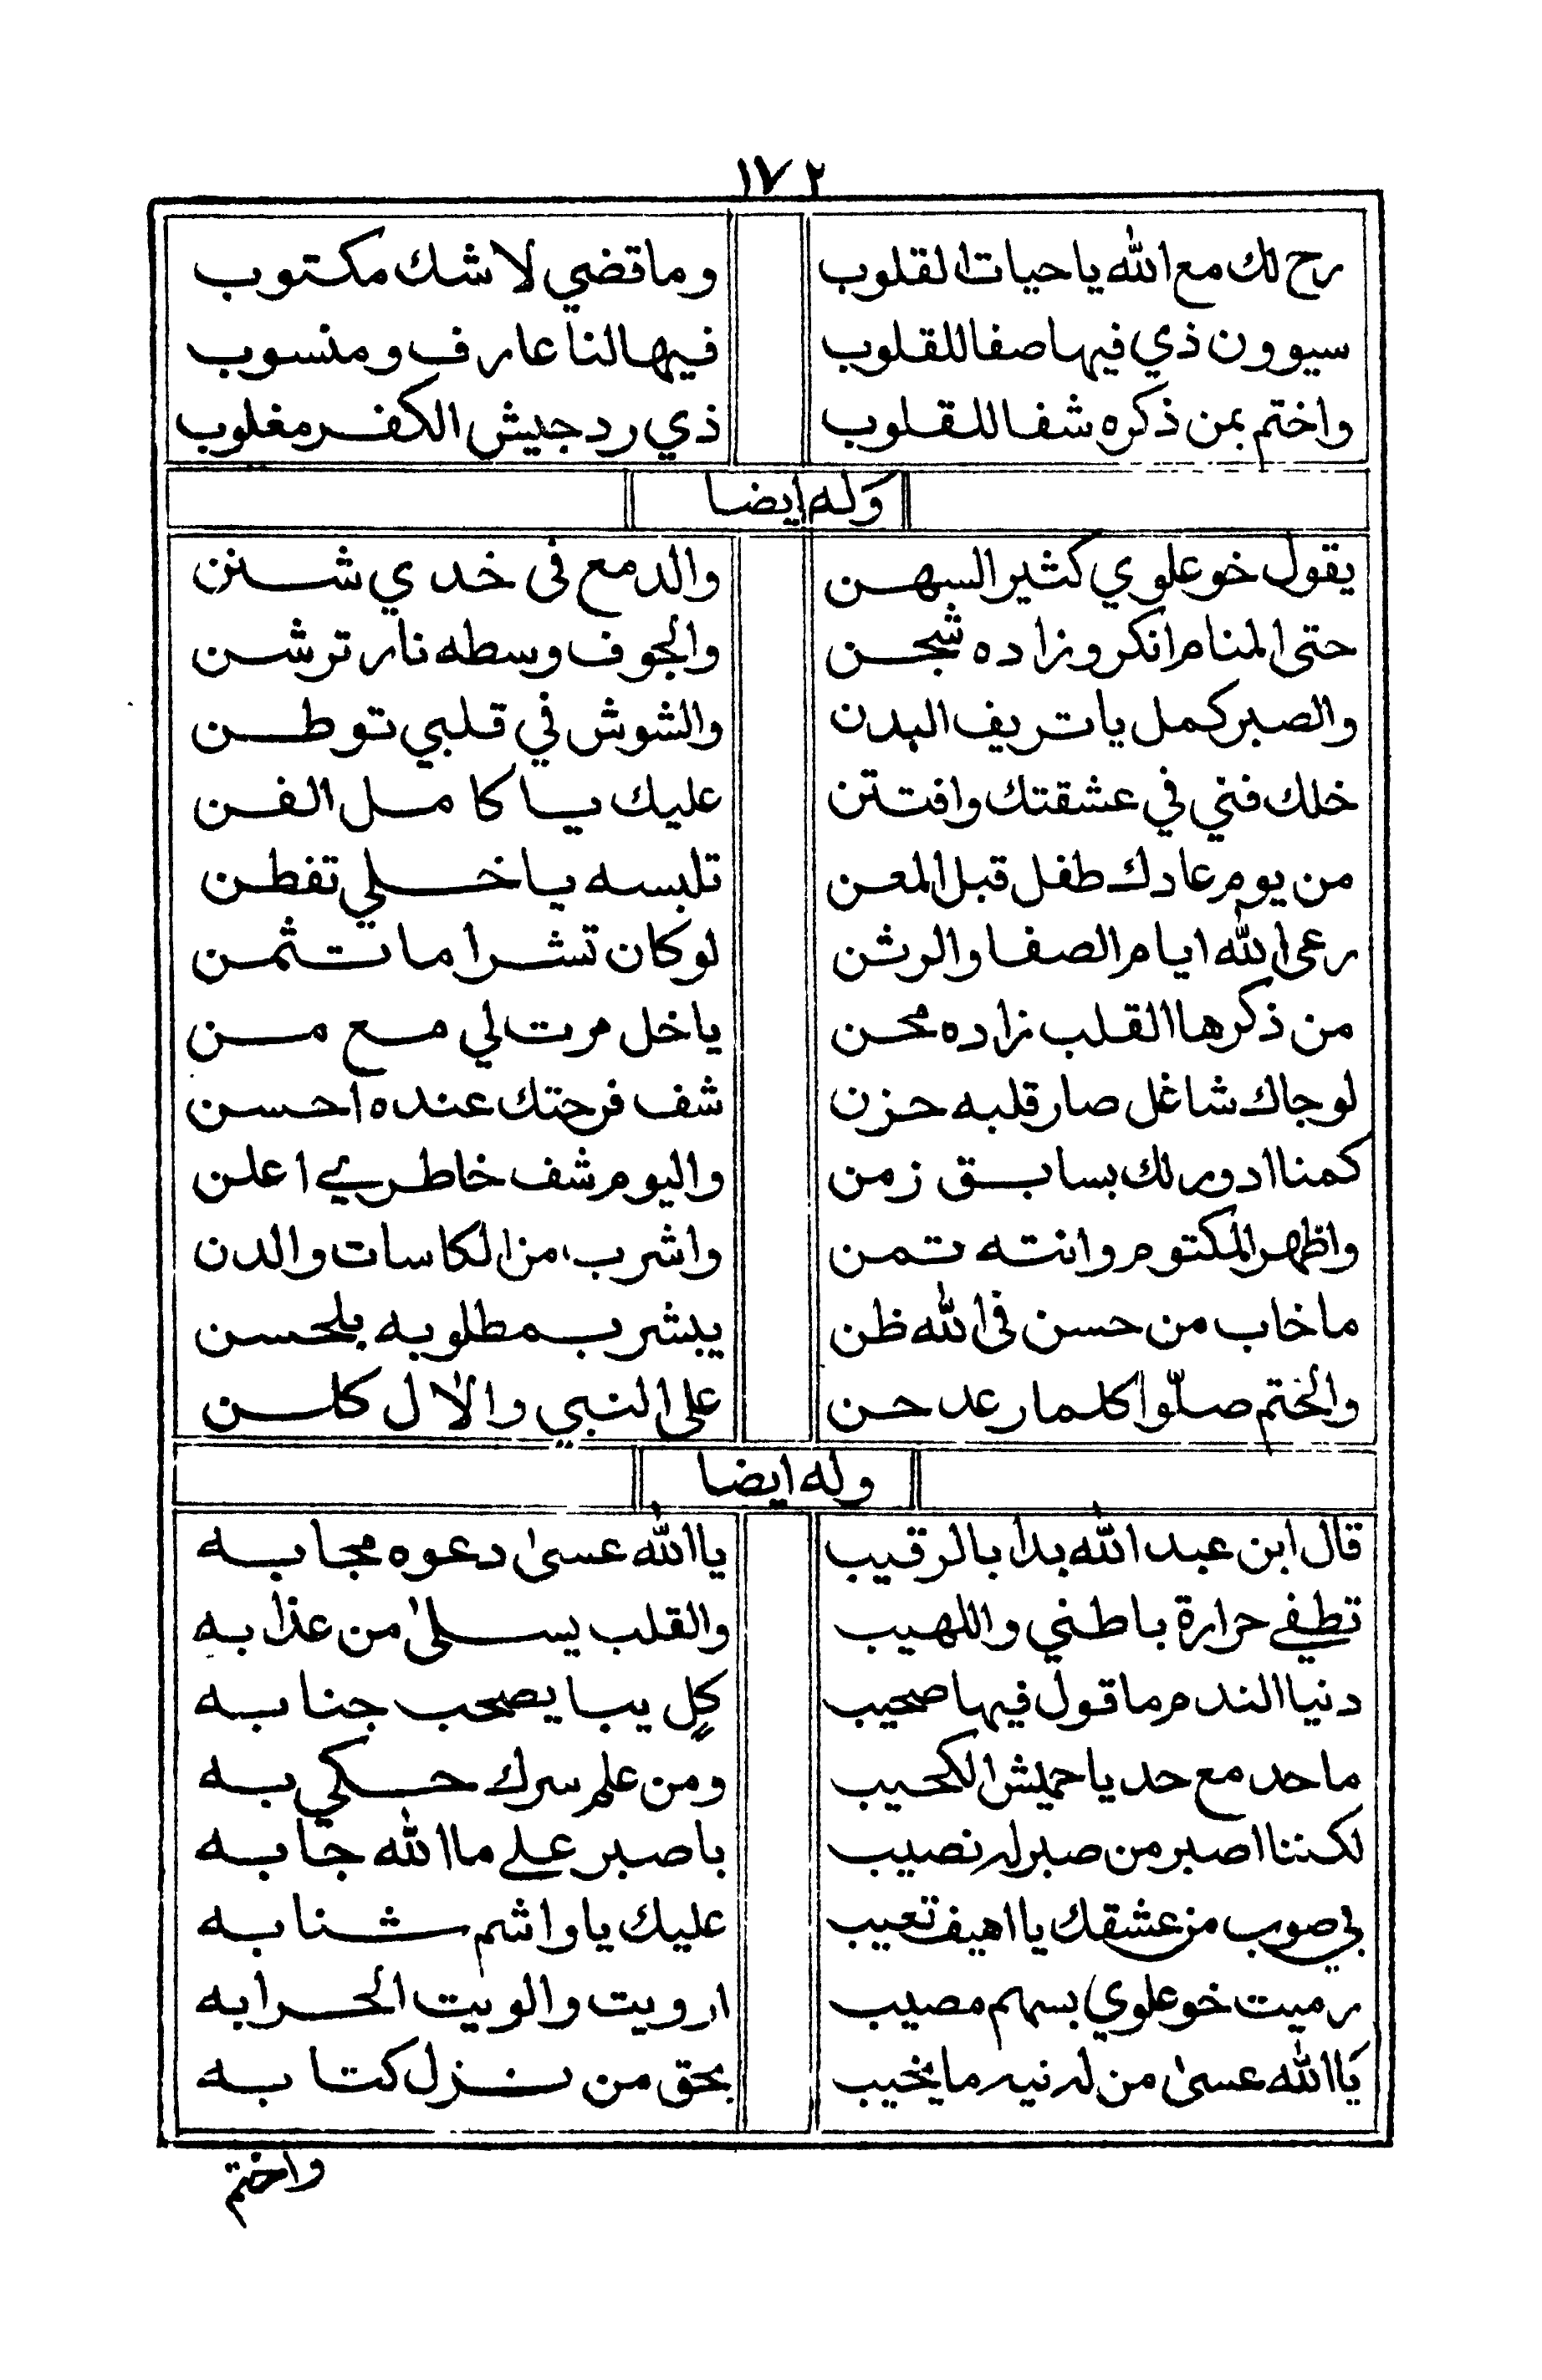 ١٧٢
رح لك مع الله يا حيات القلوب وما قضي لا شك مكتوب
سيوون ذي فيها صفا للقلوب فيها لنا عارف ومنسوب
واختم بمن ذكره شفا للقلوب ذي رد جيش الكفر مغلوب
وله ايضا
يقول خو علوي كثير السهن والدمع في خدي شنن
حتى المنام انكر وزاده شجن والجوف وسطه نار ترشن
والصبر كمل يا تريف البدن والشوش في قلبي توطن
خلك فني في عشقتك وافتتن عليك يا كامل الفن
من يوم عادك طفل قبل المعن تلبسه يا خلي تفطن
رعى الله ايام الصفا والرثن لو كان تشرا ما تثمن
من ذكرها القلب زاده محن يا خل مرت لي مع من
لو جاك شاغل صار قلبه حزن شف فرحتك عنده احسن
كمنا ادور لك بسابق زمن واليوم شف خاطري اعلن
واظهر المكتوم وانته تمن واشرب من الكاسات والدن
ما خاب من حسن في الله ظن يبشر بمطلوبه بلحسن
والختم صلّوا كلما رعد حن على النبي والال كلن
وله ايضا
قال ابن عبد الله بدا بالرقيب يا الله عسىٰ دعوه مجابه
تطفي حرارة باطني واللهيب والقلب يسلىٰ من عذابه
دنيا الندم ما قول فيها صحيب كلٍ يبا يصحب جنابه
ما حد مع حد يا حميش الكحيب ومن علم سرك حكي به
لكننا اصبر من صبر له نصيب باصبر على ما الله جابه
بي صوب من عشقك يا اهيف تعيب عليك يا واشم شنابه
رميت خو علوي بسهم مصيب ارويت والويت الحرابه
يَا الله عسىٰ من له نيه ما يخيب بحق من نزل كتابه
واختم